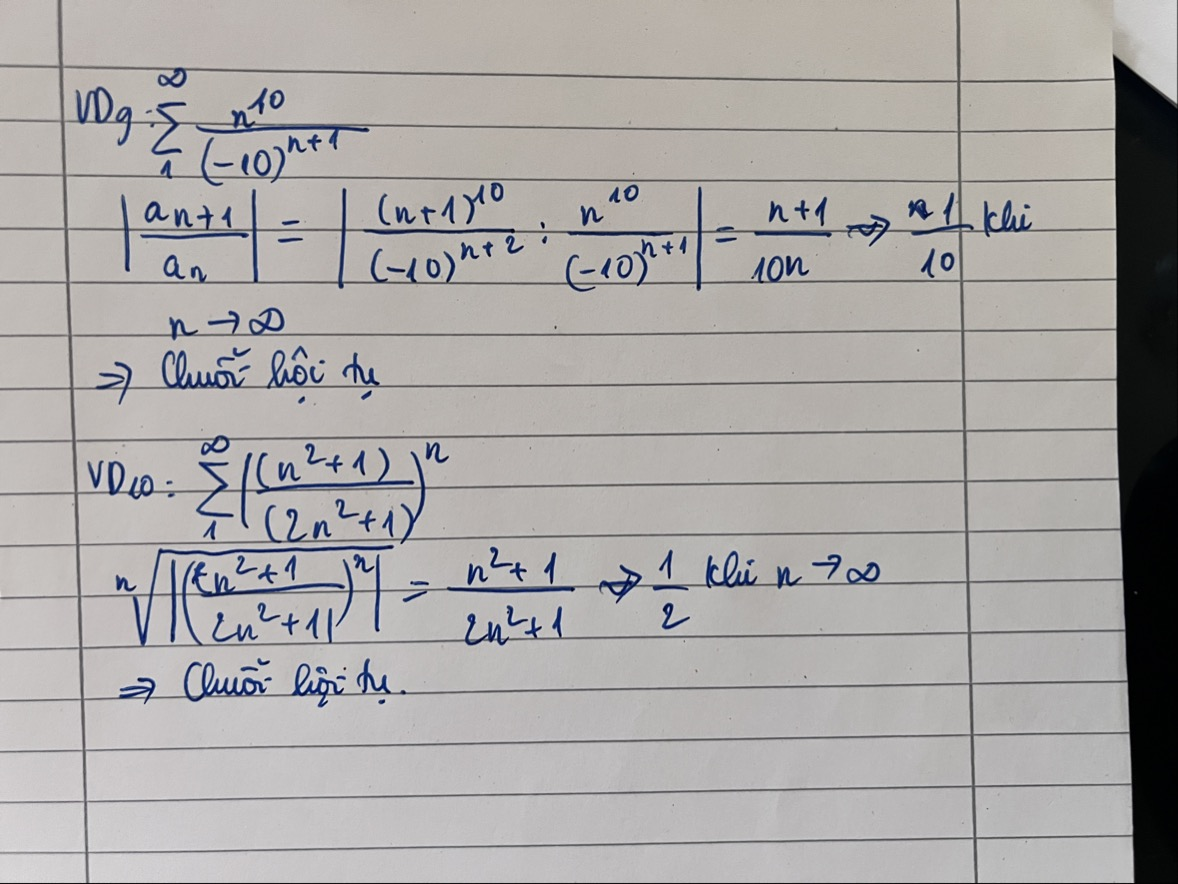 VD9: ∑_{1}^{∞} n^{10} / (-10)^{n+1}
|a_{n+1} / a_n| = |(n+1)^{10} / (-10)^{n+2} : n^{10} / (-10)^{n+1}| = (n+1) / 10n → 1/10 khi
n → ∞
⇒ Chuỗi hội tụ
VD10: ∑_{1}^{∞} ((n²+1) / (2n²+1))^n
ⁿ√|((n²+1) / (2n²+1))^n| = (n²+1) / (2n²+1) → 1/2 khi n → ∞
⇒ Chuỗi hội tụ.